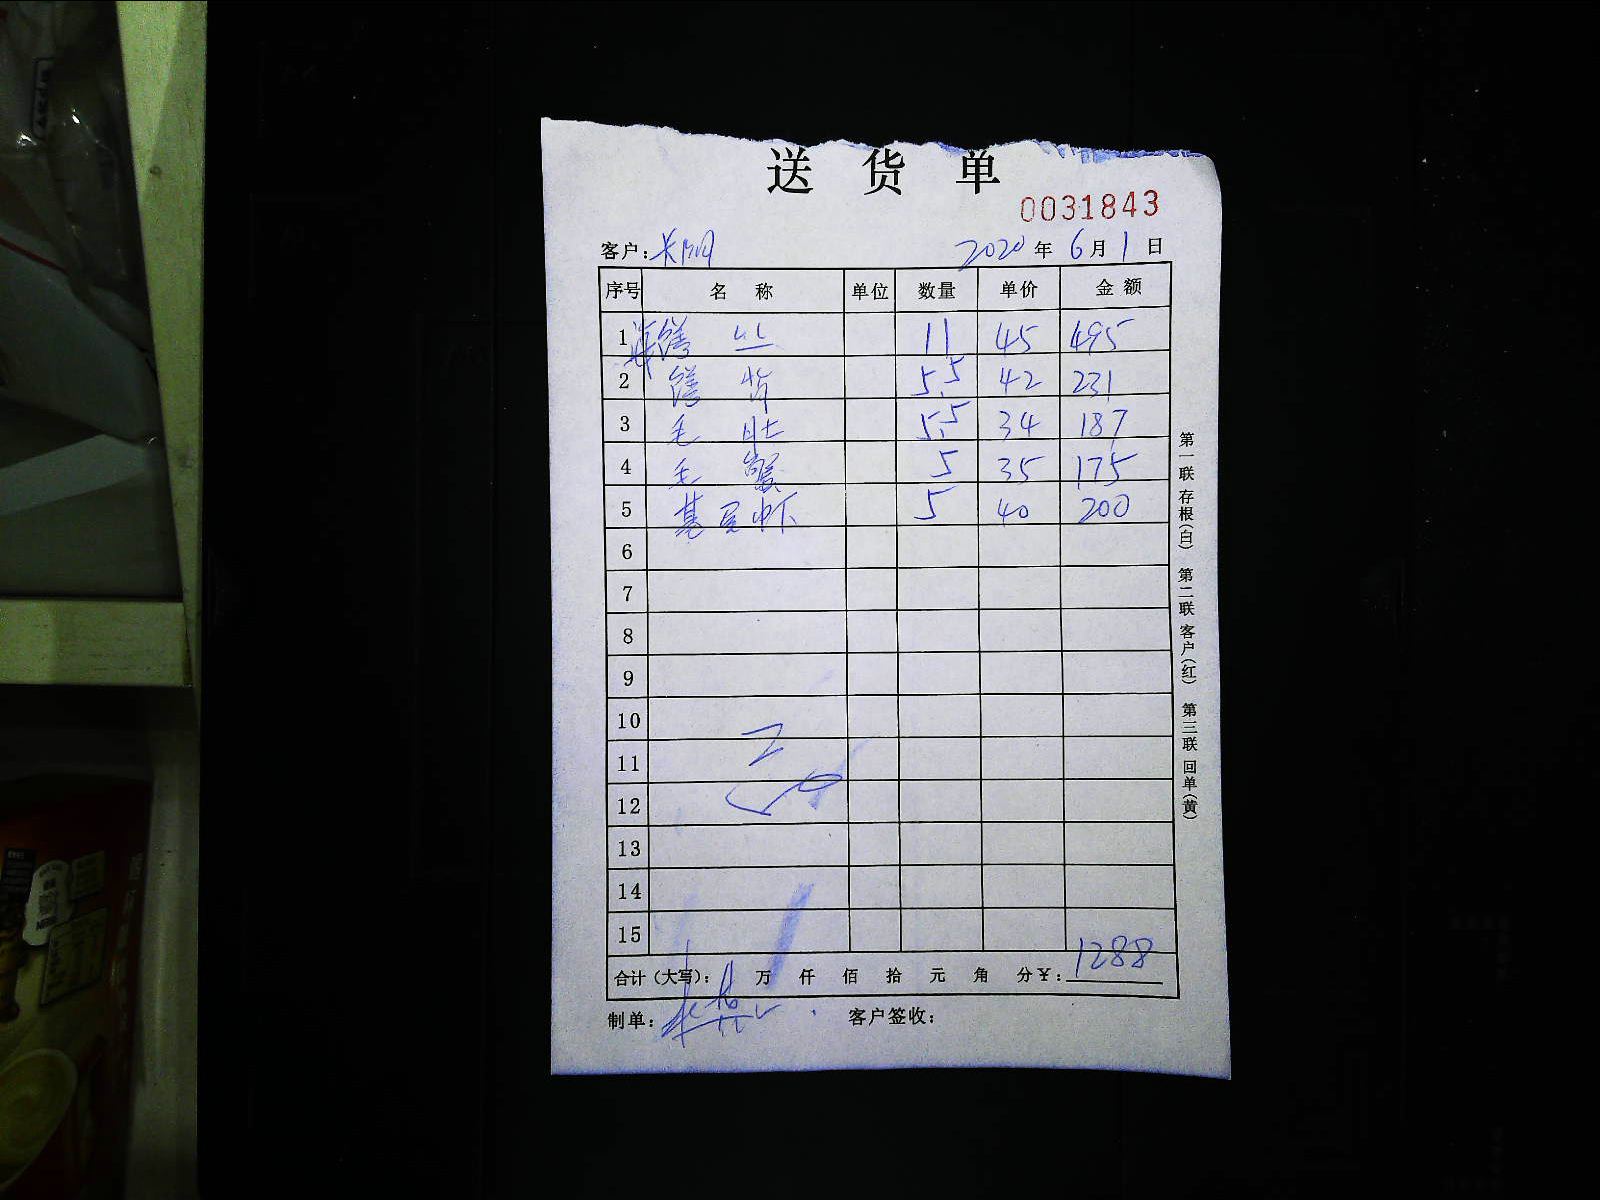 送 货 单
0031843
客户: 2020 年 6 月 1 日
序号 名 称 单位 数量 单价 金 额
1 11 45 495
2 5.5 42 231
3 毛 肚 5.5 34 187
4 毛 5 35 175
5 基围虾 5 40 200
6
7
8
9
10
11
12
13
14
15
合计(大写): 万 仟 佰 拾 元 角 分 ¥: 1288
制单: 客户签收:
第一联 存根(白) 第二联 客户(红) 第三联 回单(黄)